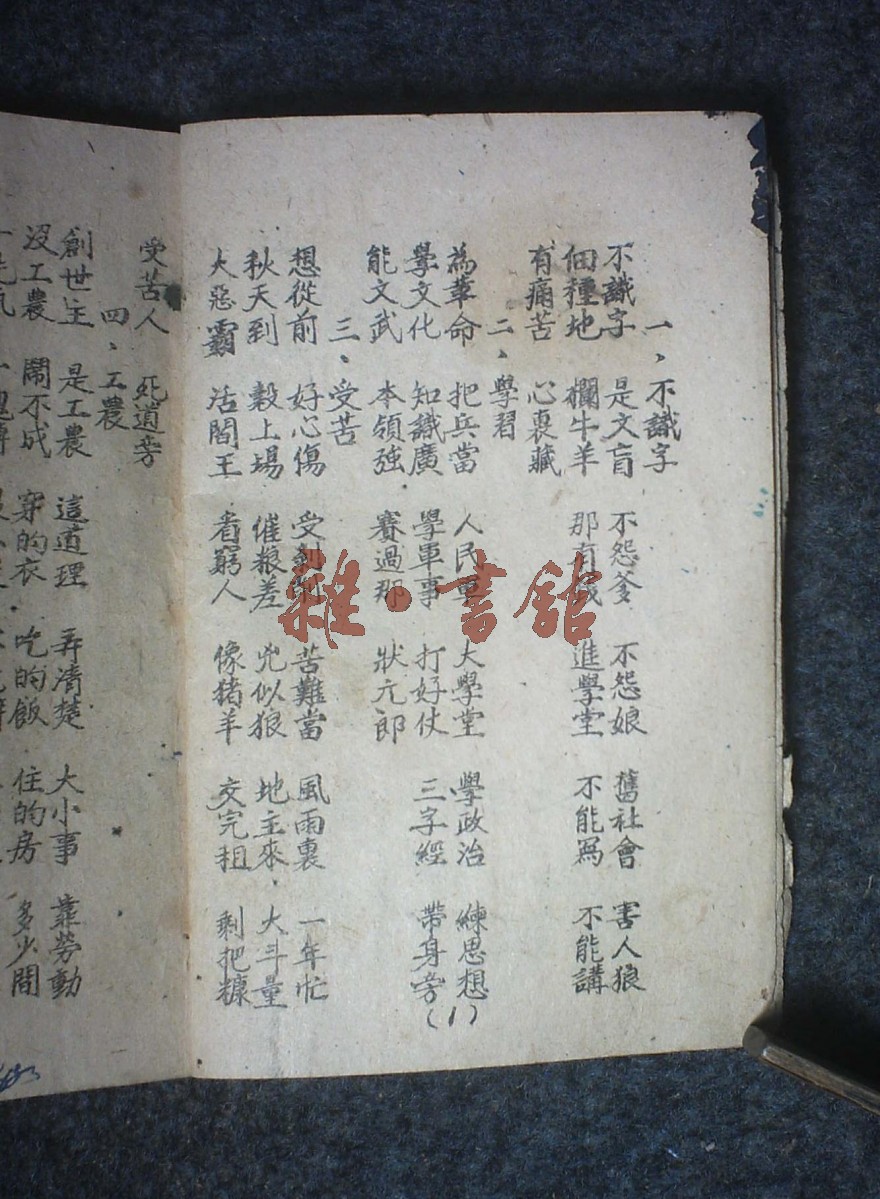 一、不識字
不識字 是文盲 不怨爹 不怨娘 舊社會 害人狼
佃種地 欄牛羊 那有 進學堂 不能寫 不能講
有痛苦 心裏藏
二、學習
為革命 把兵當 人民軍 大學堂 學政治 練思想
學文化 知識廣 學軍事 打好仗 三字經 帶身旁
能文武 本領強 賽過那 狀元郎
三、受苦
想從前 好心傷 受剝削 苦難當 風雨裏 一年忙
秋天到 穀上場 催粮差 兇似狼 地主來 大斗量
大惡霸 活閻王 看窮人 像猪羊 交完租 剩把糠
(1)
受苦人 死道旁
四、工農
創世主 是工農 這道理 弄清楚 大小事 靠勞動
沒工農 鬧不成 穿的衣 吃的飯 住的房 多少間
雜·書館